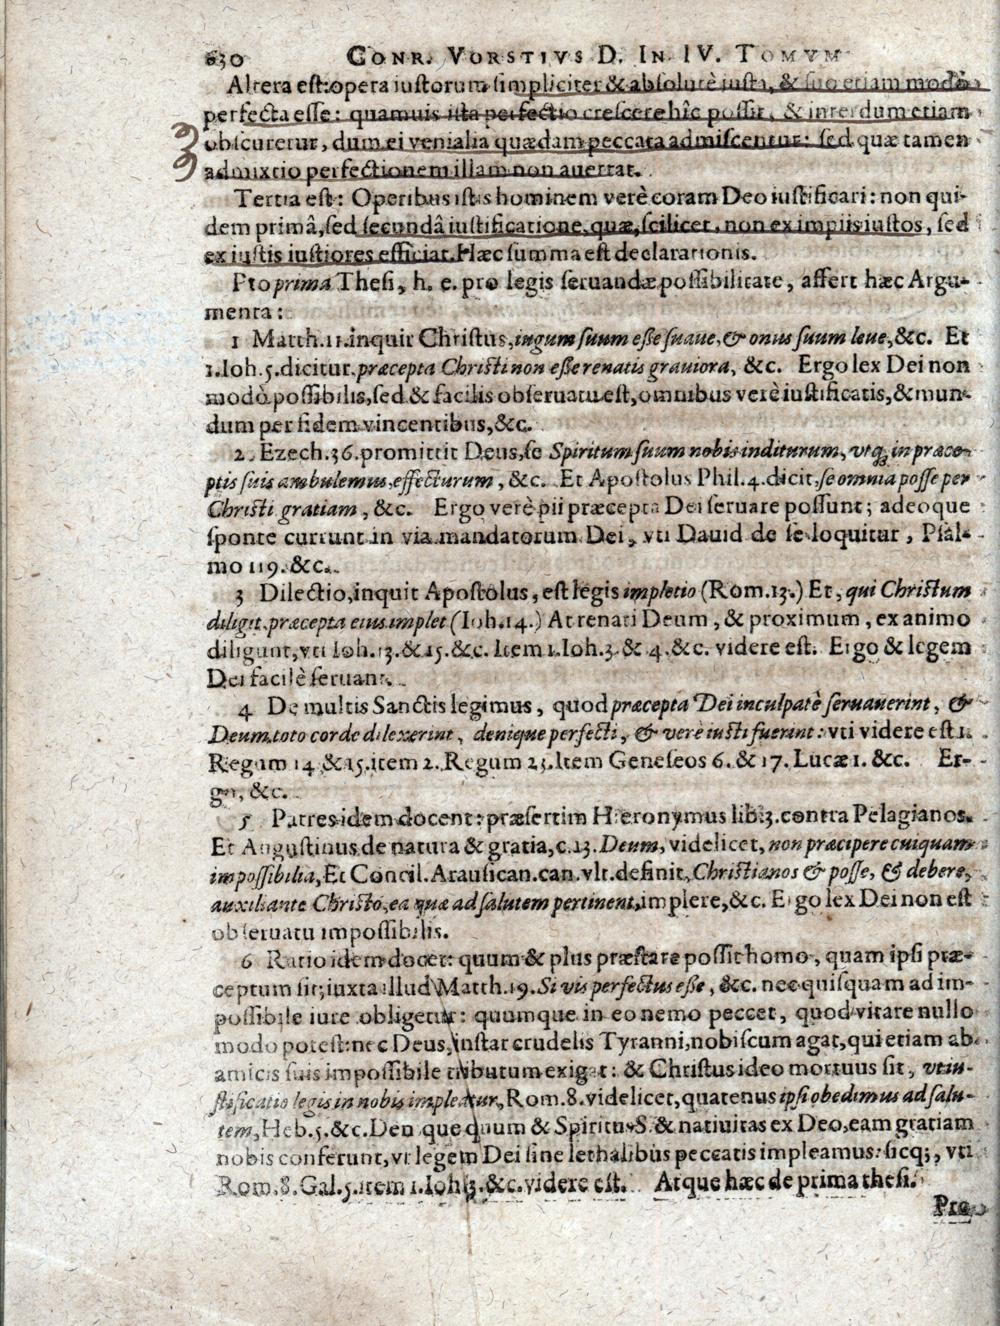 630 CONR. VORSTIVS D. IN IV. TOMVM
Altera est: opera iustorum simpliciter & absolutè iusta, & suo etiam modo
perfecta esse: quamuis ista perfectio crescere hîc possit, & interdum etiam
obscuretur, dum ei venialia quædam peccata admiscentur: sed quæ tamen
admixtio perfectionem illam non auertat.
Tertia est: Operibus istis hominem verè coram Deo iustificari: non qui-
dem primâ, sed secundâ iustificatione, quæ, scilicet, non ex impiis iustos, sed
ex iustis iustiores efficiat. Hæc summa est declarationis.
Pro prima Thesi, h. e. pro legis seruandæ possibilitate, affert hæc Argu-
menta:
1 Matth. 11. inquit Christus, iugum suum esse suaue, & onus suum leue, &c. Et
1. Ioh. 5. dicitur, præcepta Christi non esse renatis grauiora, &c. Ergo lex Dei non
modò possibilis, sed & facilis obseruatu est, omnibus verè iustificatis, & mun-
dum per fidem vincentibus, &c.
2. Ezech. 36. promittit Deus, se Spiritum suum nobis inditurum, vtq; in præce-
ptis suis ambulemus, effecturum, &c. Et Apostolus Phil. 4. dicit, se omnia posse per
Christi gratiam, &c. Ergo verè pii præcepta Dei seruare possunt; adeoque
sponte currunt in via mandatorum Dei, vti Dauid de se loquitur, Psal-
mo 119. &c.
3 Dilectio, inquit Apostolus, est legis impletio (Rom. 13.) Et, qui Christum
diligit, præcepta eius implet (Ioh. 14.) At renati Deum, & proximum, ex animo
diligunt, vti Ioh. 13. & 15. &c. Item 1. Ioh. 3. & 4. &c. videre est. Ergo & legem
Dei facilè seruant.
4 De multis Sanctis legimus, quod præcepta Dei inculpatè seruauerint, &
Deum toto corde dilexerint, denique perfecti, & verè iusti fuerint: vti videre est 1.
Regum 14. & 15. item 2. Regum 23. Item Geneseos 6. & 17. Lucæ 1. &c. Er-
go, &c.
5 Patres idem docent: præsertim Hieronymus lib. 3. contra Pelagianos.
Et Augustinus de natura & gratia, c. 13. Deum, videlicet, non præcipere cuiquam
impossibilia, Et Concil. Arausican. can. vlt. definit, Christianos & posse, & debere,
auxiliante Christo, ea quæ ad salutem pertinent, implere, &c. Ergo lex Dei non est
obseruatu impossibilis.
6 Ratio idem docet: quum & plus præstare possit homo, quam ipsi præ-
ceptum sit; iuxta illud Matth. 19. Si vis perfectus esse, &c. nec quisquam ad im-
possibile iure obligetur: quumque in eo nemo peccet, quod vitare nullo
modo potest: nec Deus, instar crudelis Tyranni, nobiscum agat, qui etiam ab
amicis suis impossibile tributum exigat: & Christus ideo mortuus sit, vt iu-
stificatio legis in nobis impleatur, Rom. 8. videlicet, quatenus ipsi obedimus ad salu-
tem, Heb. 5. &c. Denique quum & Spiritus S. & natiuitas ex Deo, eam gratiam
nobis conferunt, vt legem Dei sine lethalibus peccatis impleamus: sicq;, vti
Rom. 8. Gal. 5. item 1. Ioh. 3. &c. videre est. Atque hæc de prima thesi.
Pro